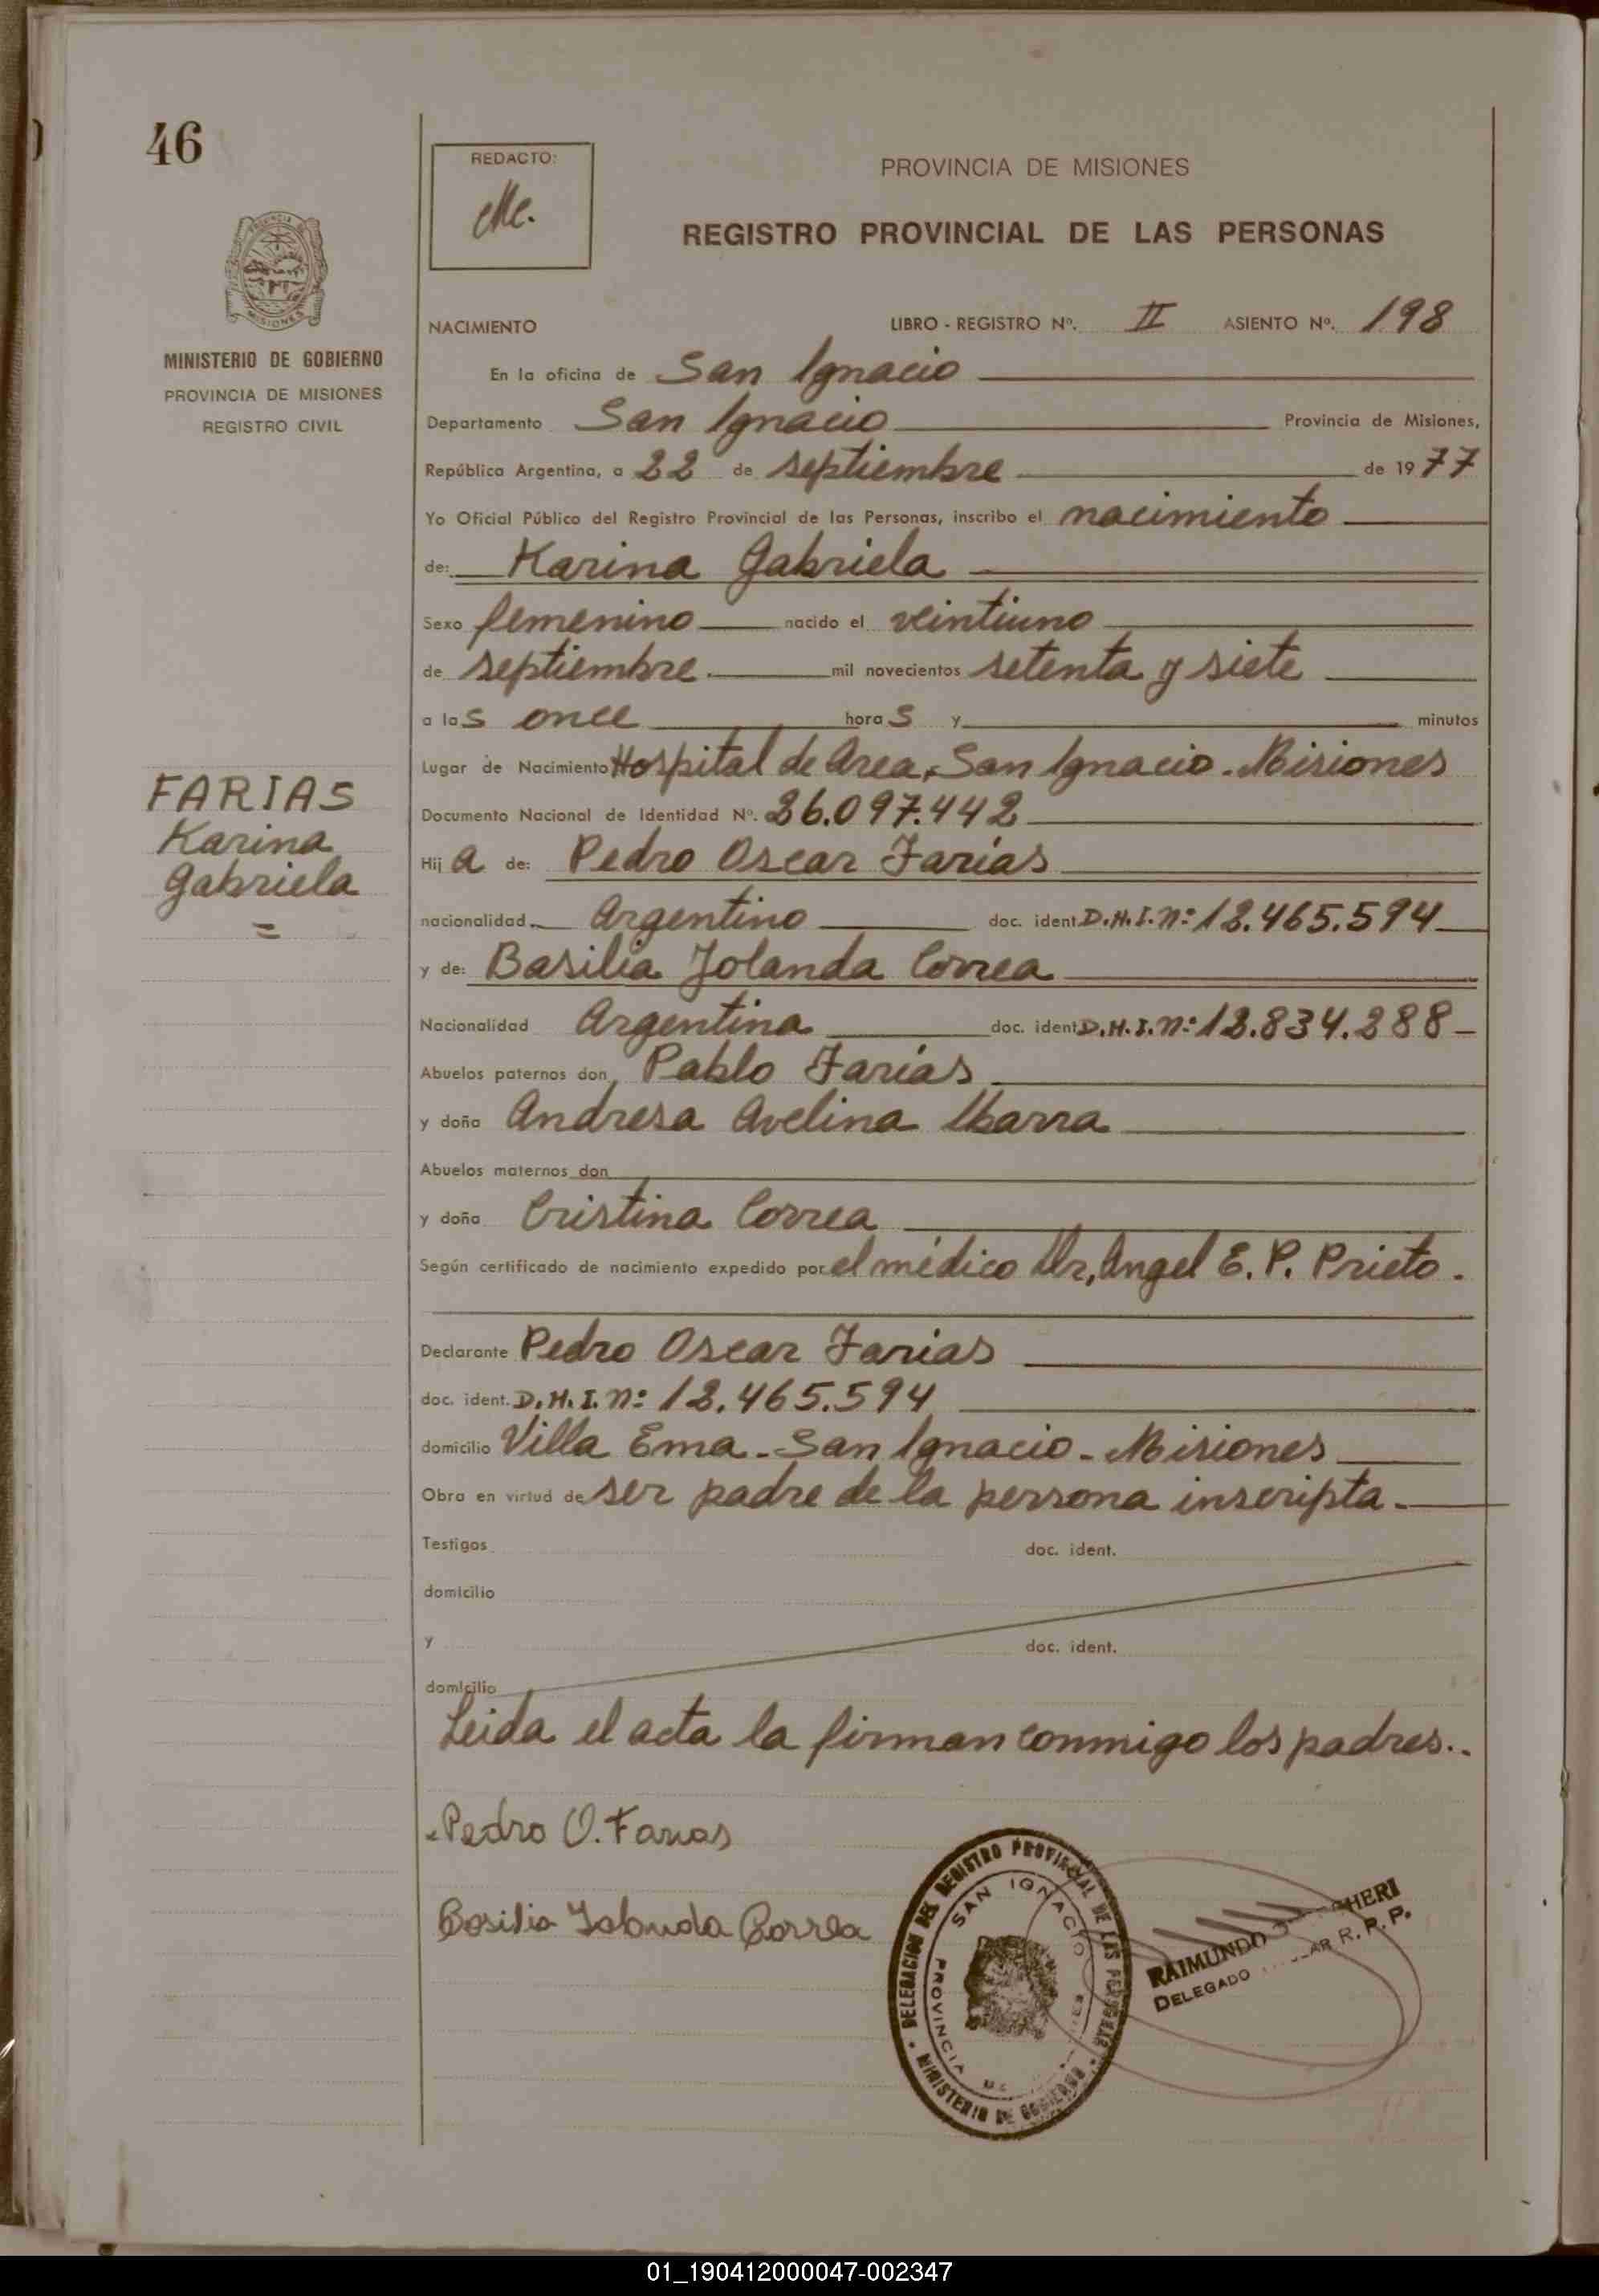 46
REDACTO:
Mc.
PROVINCIA DE MISIONES
REGISTRO PROVINCIAL DE LAS PERSONAS
PROVINCIA
MISIONES
MINISTERIO DE GOBIERNO
PROVINCIA DE MISIONES
REGISTRO CIVIL
NACIMIENTO LIBRO - REGISTRO Nº. II ASIENTO Nº. 198
En la oficina de San Ignacio
Departamento San Ignacio Provincia de Misiones,
República Argentina, a 22 de septiembre de 1977
Yo Oficial Público del Registro Provincial de las Personas, inscribo el nacimiento
de: Karina Gabriela
Sexo femenino nacido el veintiuno
de septiembre mil novecientos setenta y siete
a las once horas y minutos
Lugar de Nacimiento Hospital de Area, San Ignacio. Misiones
Documento Nacional de Identidad Nº. 26.097.442
FARIAS
Karina
Gabriela
=
Hija de: Pedro Oscar Farías
nacionalidad. Argentino doc. ident D.N.I. nº: 12.465.594
y de: Basilia Jolanda Correa
Nacionalidad Argentina doc. ident D.N.I. nº: 12.834.288
Abuelos paternos don, Pablo Farías
y doña Andresa Avelina Ibarra
Abuelos maternos don
y doña Cristina Correa
Según certificado de nacimiento expedido por el médico Dr, Angel E. P. Prieto.
Declarante Pedro Oscar Farias
doc. ident. D.N.I. nº: 12.465.594
domicilio Villa Ema - San Ignacio - Misiones
Obra en virtud de ser padre de la persona inscripta.
Testigos doc. ident.
domicilio
y doc. ident.
domicilio
Leida el acta la firman conmigo los padres..
Pedro O. Farias
Basilia Jolanda Correa
DELEGACION DEL REGISTRO PROVINCIAL DE LAS PERSONAS
SAN IGNACIO
PROVINCIA DE
MINISTERIO DE GOBIERNO
RAIMUNDO
DELEGADO R. P. P.
01_190412000047-002347